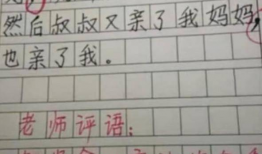 然后叔叔又亲了我妈妈,
也亲了我。
老师评语: